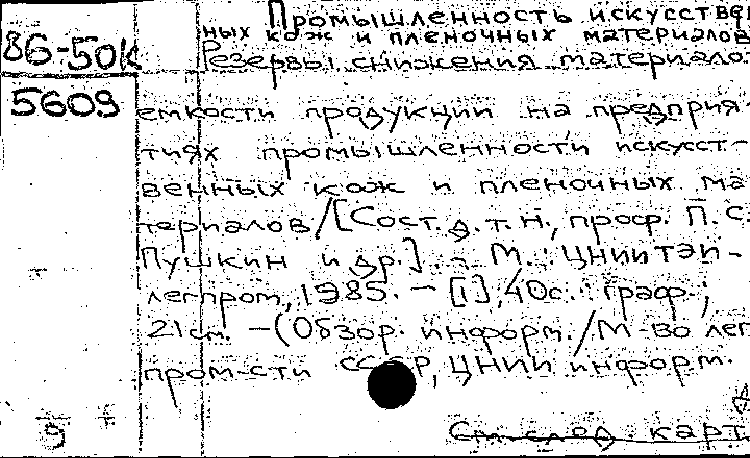 Промышленность искусствен
86-50к
ных кож и пленочных материалов
Резервы снижения материало
5609
емкости продукции на предприя
тиях промышленности искусст-
венных кож и пленочных ма
териалов/[Сост. д.т.н., проф. П.С.
Пушкин и др.]. - М.: ЦНИИТЭИ-
легпром, 1985. - [1], 40с.: граф.;
21 см. - (Обзор. информ./М-во лег
пром-сти СССР, ЦНИИ информ.
9
См. след. карт